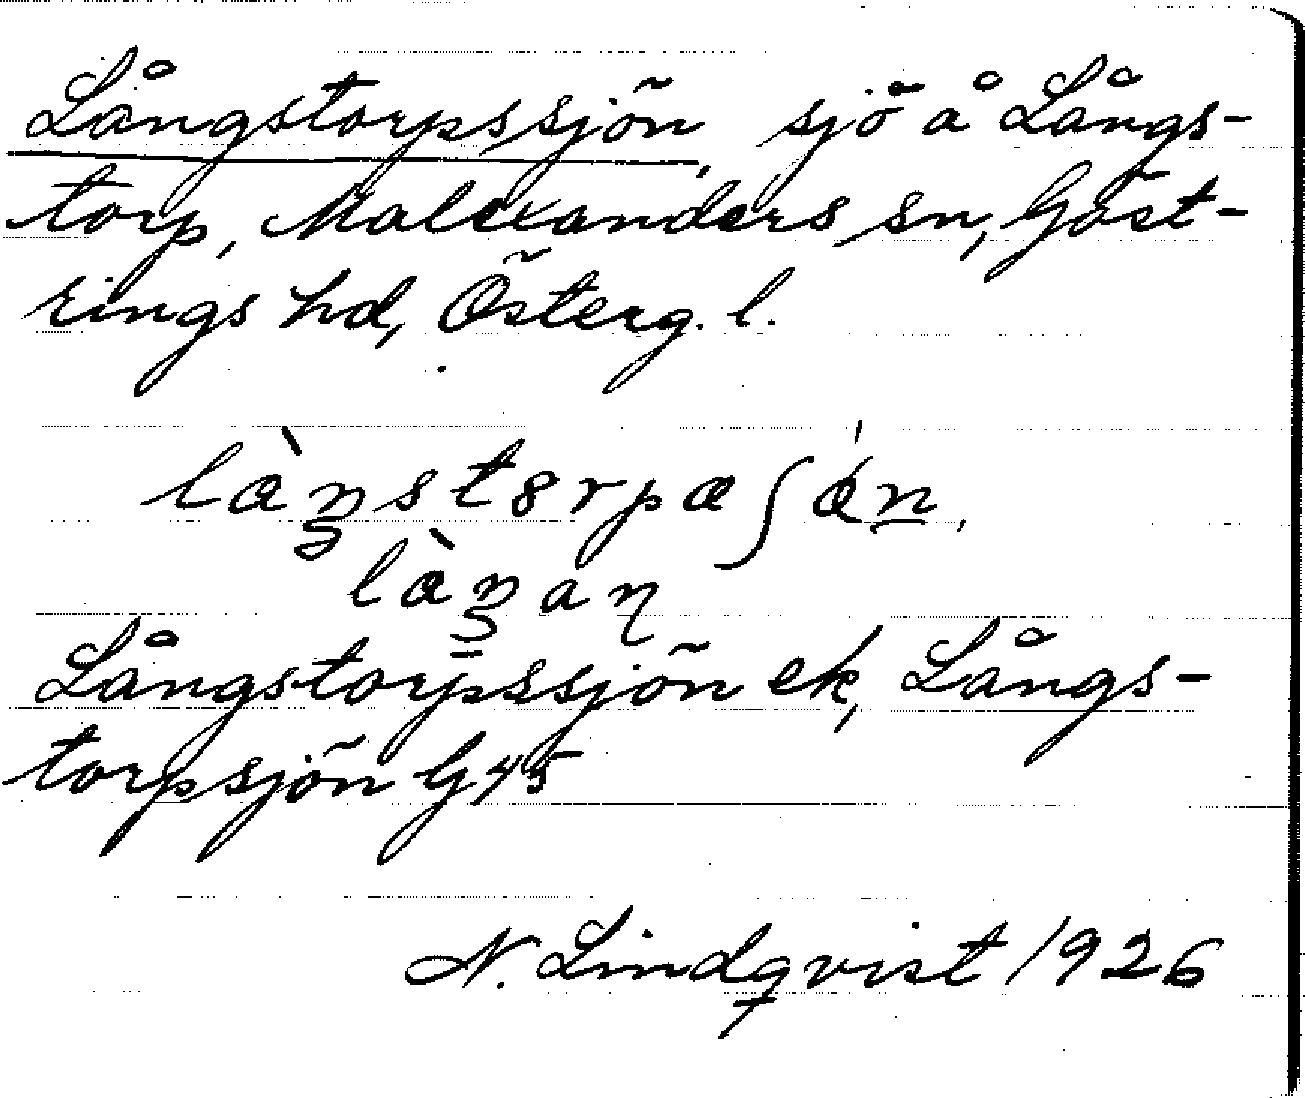 Långstorpssjön, sjö å Långs-
torp, Malexanders sn, Göst-
rings hd, Österg. l.
Långstorpssjön ek, Långs-
torpsjön G 45
N. Lindqvist 1926